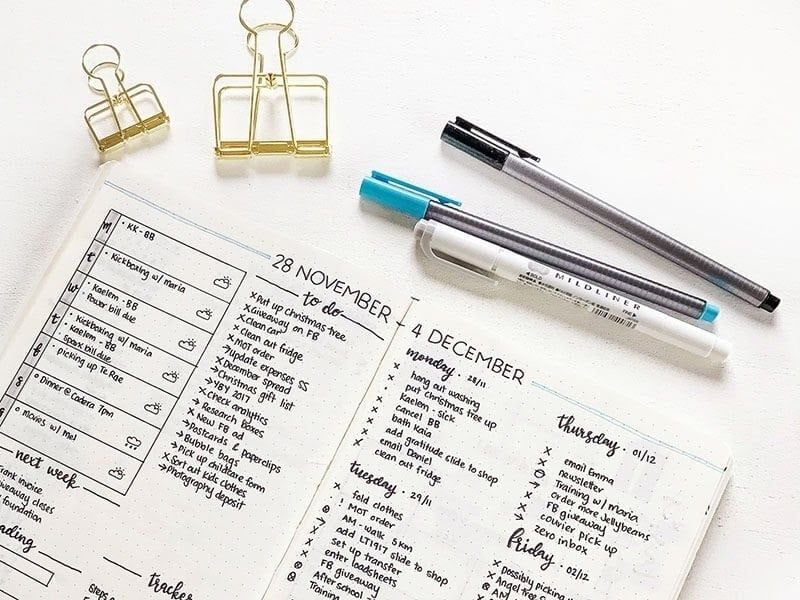 28 NOVEMBER
m
• KK - BB
t
• Kickboxing w/ Maria
w
• Kaelem - BB
• Power bill due
t
• Kickboxing w/ Maria
• Kaelem - BB
• Spark bill due
f
picking up Te Rae
s
o Dinner @ Cadera 7pm
s
o Movies w/ Mel
next week
invoice
giveaway closes
foundation
tracker
to do
x Put up Christmas tree
x Giveaway on FB
x clean car
x clean out fridge
x MOT order
→ update expenses SS
→ December spread
→ Christmas gift list
→ YBY 2017
x Check analytics
→ Research Boxes
x New FB ad
→ Postcards & paperclips
→ Bubble bags
→ Pick up childcare form
x Sort out kids clothes
→ Photography deposit
4 DECEMBER
monday • 28/11
x hang out washing
x put Christmas tree up
x Kaelem : sick
x cancel BB
x bath Kaia
x add gratitude slide to shop
x email Daniel
x clean out fridge
tuesday • 29/11
x fold clothes
! MOT order
AM - walk 5 km
→ add LT1917 slide to shop
x set up transfer
x enter loadsheets
x FB giveaway
After school
Training
thursday • 01/12
x email Emma
x newsletter
Training w/ Maria
→ order more Jellybeans
x FB giveaway
x courier pick up
→ zero inbox
friday • 02/12
x Possibly picking
x Angel tree
AM
MILDLINER